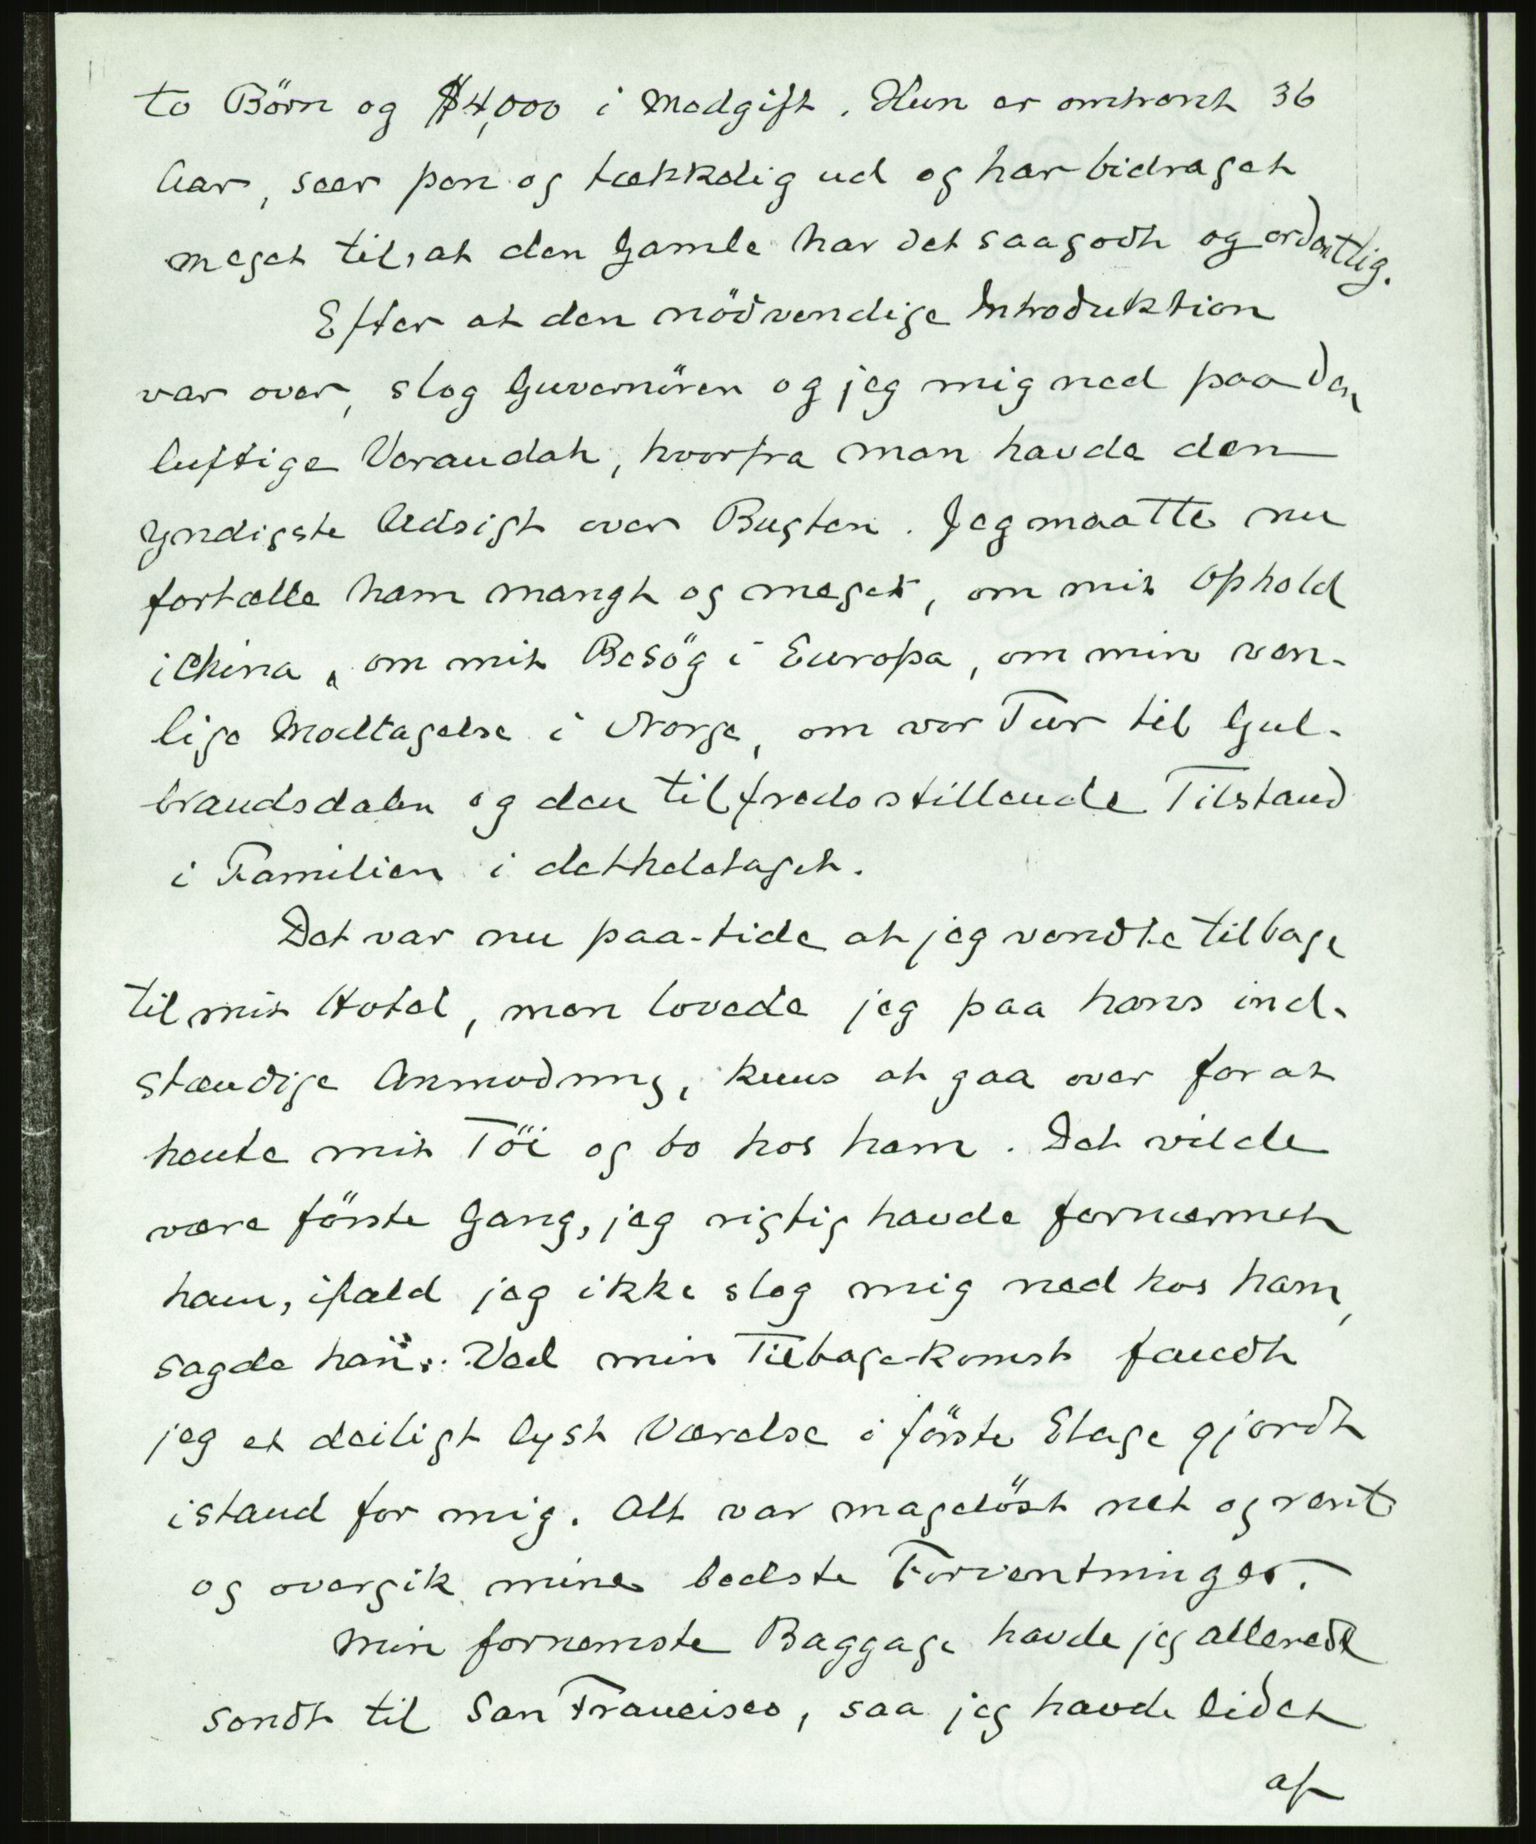 to Börn og $4,000 i Medgift. Hun er omtrent 36
Aar, seer pen og tækkelig ud og har bidraget
meget til, at den Gamle har det saa godt og ordentlig.
Efter at den nödvendige Introduktion
var over, slog Guvernören og jeg mig ned paa den
luftige Verandah, hvorfra man havde den
yndigste Udsigt over Bugten. Jeg maatte nu
fortælle ham mangt og meget, om mit Ophold
i China, om mit Besög i Europa, om min ven-
lige Modtagelse i Norge, om vor Tur til Gul-
brandsdalen og den tilfredsstillende Tilstand
i Familien i dethele taget.
Det var nu paa-tide at jeg vendte tilbage
til mit Hotel, men lovede jeg paa hans ind-
stændige Anmodning, kuns at gaa over for at
hente mit Töi og bo hos ham. Det vilde
være förste Gang, jeg rigtig havde fornærmet
ham, ifald jeg ikke slog mig ned hos ham,
sagde han. Ved min Tilbage-komst fandt
jeg et deiligt lyst Værelse i förste Etage gjordt
istand for mig. Alt var magelöst net og rent
og overgik mine bedste Forventninger.
Min fornemste Baggage havde jeg allerede
sendt til San Francisco, saa jeg havde lidet
af